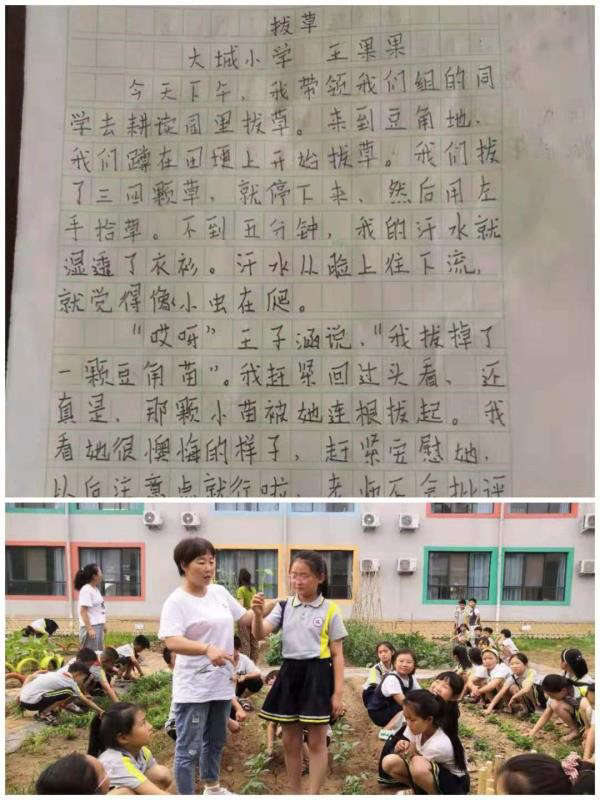 拔草
大城小学 王果果
今天下午,我带领我们组的同
学去耕读园里拔草。来到豆角地,
我们蹲在田埂上开始拔草。我们拔
了三四颗草,就停下来,然后用左
手拾草。不到五分钟,我的汗水就
湿透了衣衫。汗水从脸上往下流,
就觉得像小虫在爬。
“哎呀”王子涵说,“我拔掉了
一颗豆角苗”。我赶紧回过头看,还
真是,那颗小苗被她连根拔起。我
看她很懊悔的样子,赶紧安慰她,
以后注意点就行啦,老师不会批评